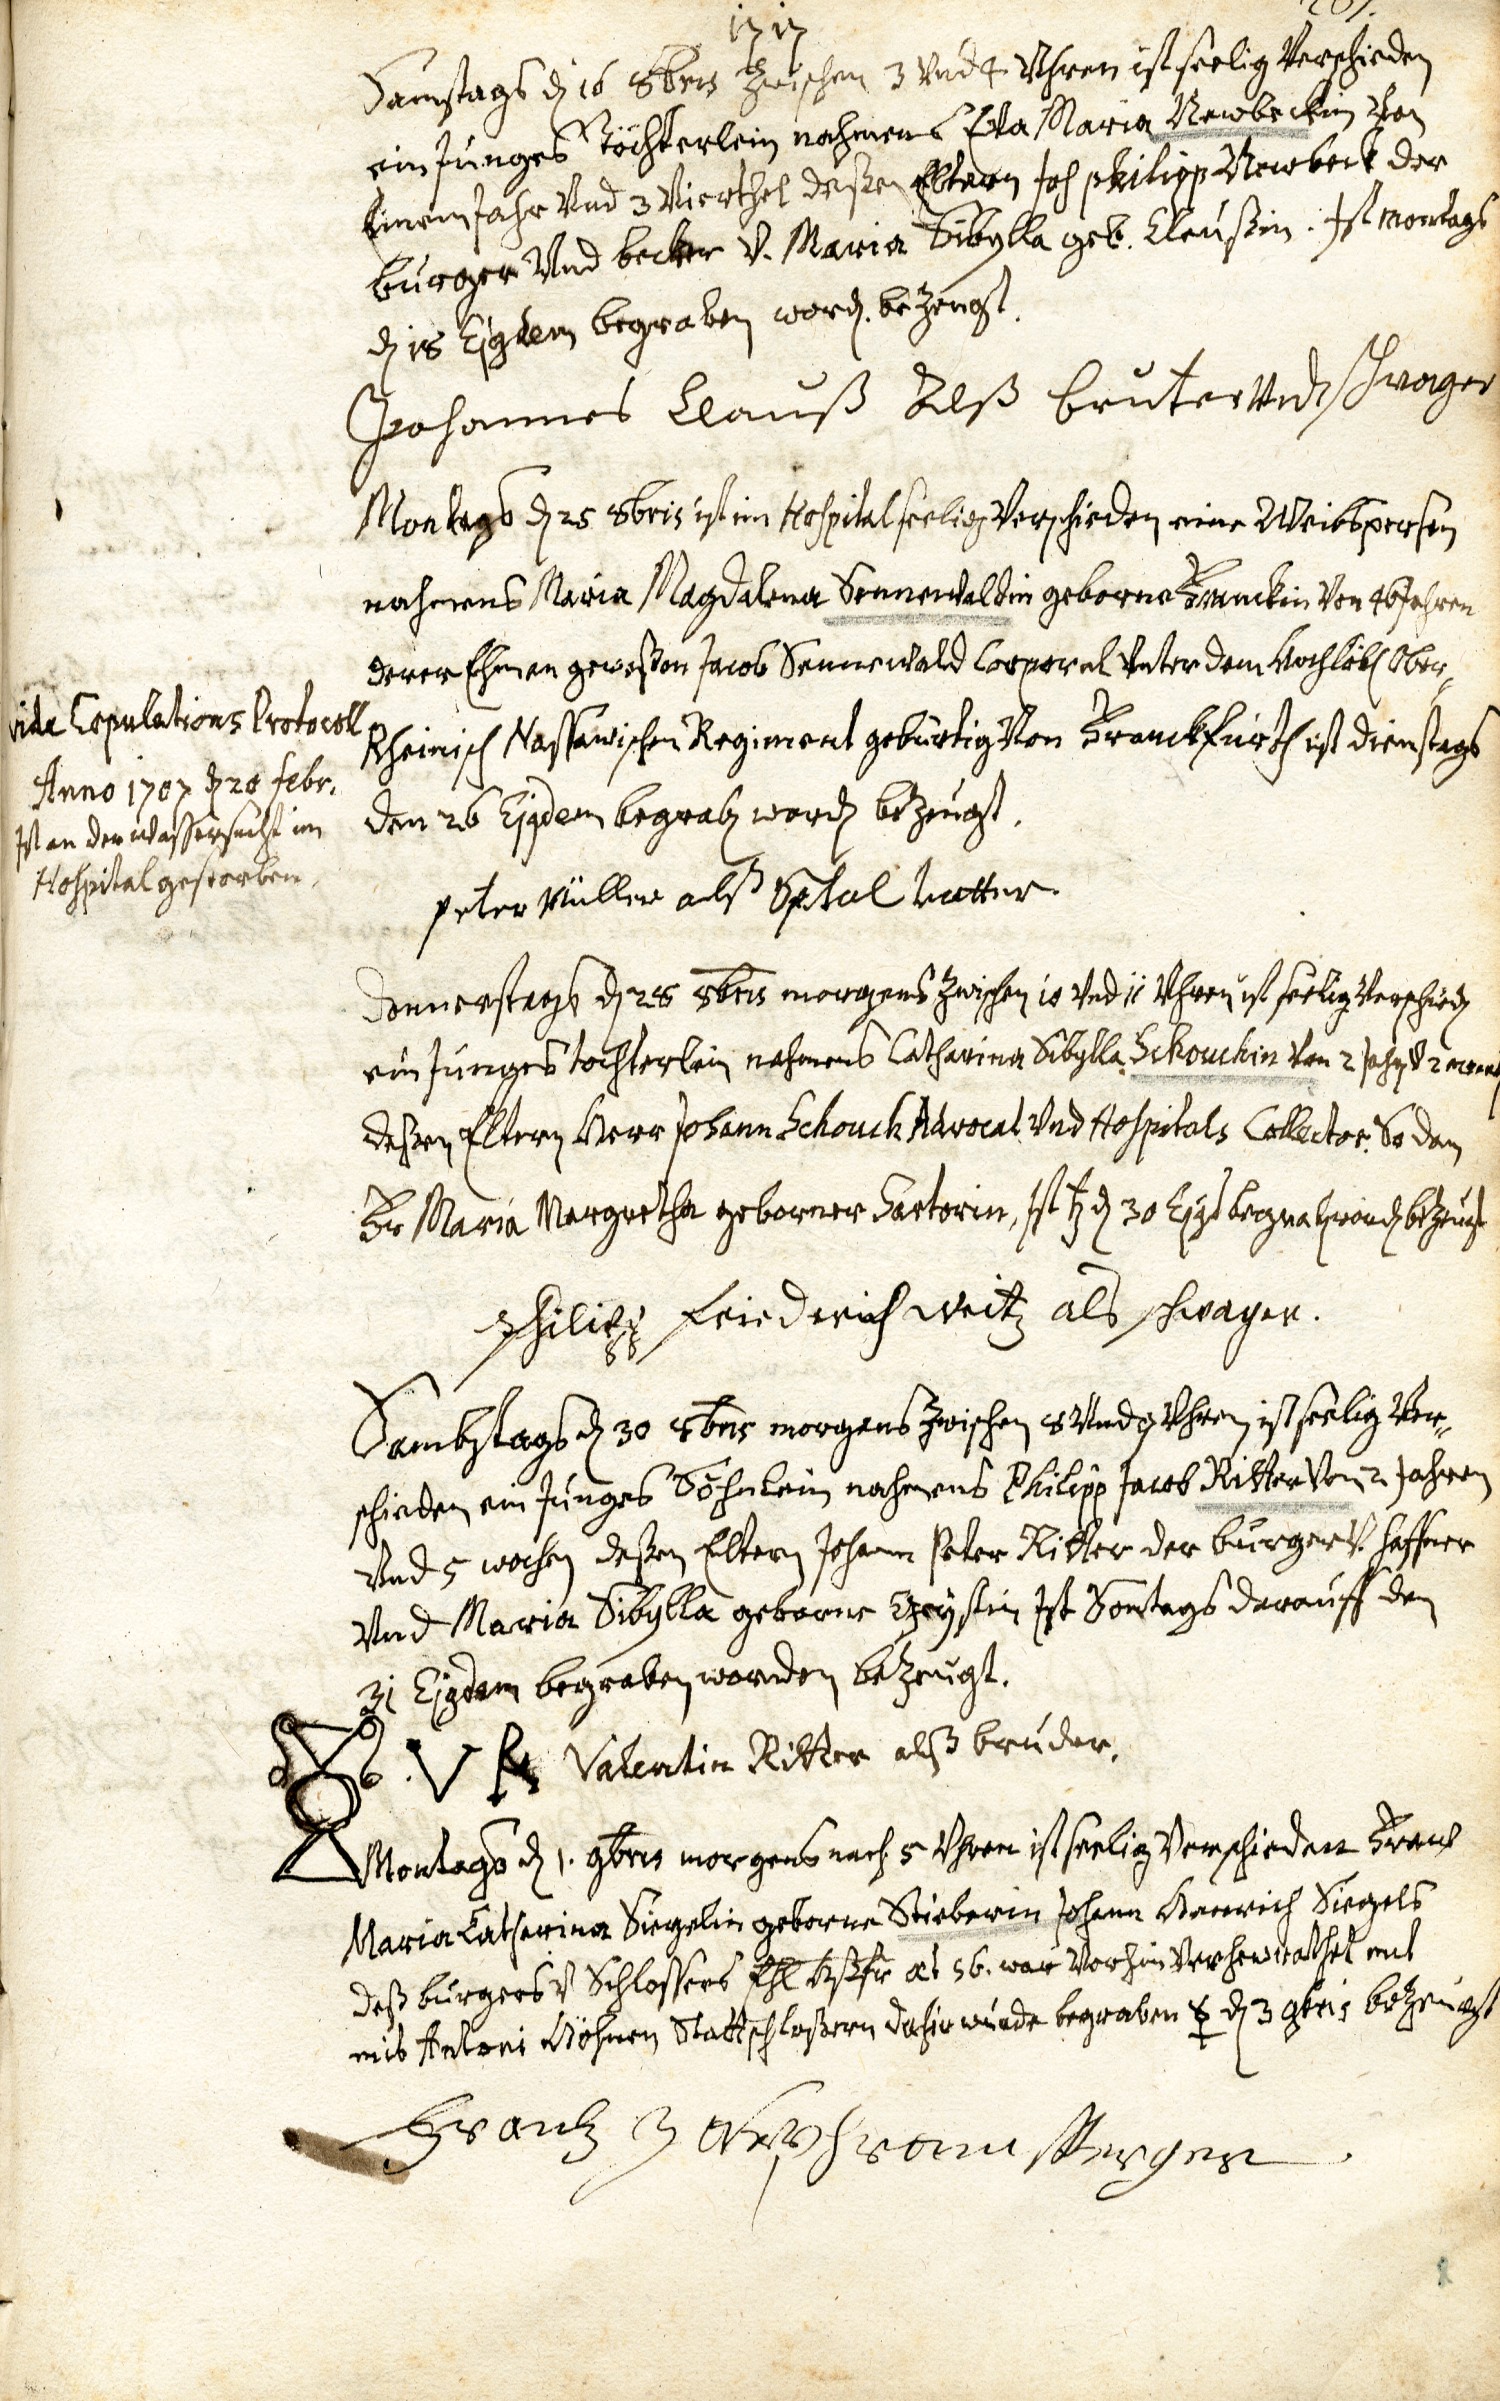 1717
Samstags d 16 8bris zwischen 3 und 4 Uhren ist seelig verschieden
ein Junges Töchterlein nahmens Eva Maria Newbeckin von
einem Jahr und 3 Vierthel deßen Eltern Joh philipp Newbeck der
burger und becker v. Maria Sibylla geb. Claußin. Ist montags
d 18 Ejgdem begraben word. bezeugt.
Johannes Clauß Alß bruter und schwager
Montags d 25 8bris ist im Hospital seelig verschieden eine Weibsperson
nahmens Maria Magdalena Sennewaldin geborne Franckin von 46 Jahren
derer Ehman geweßen Jacob Sennewald Corporal unter dem Hochlöbl Ober-
Rheinisch Nassawischen Regiment gebürtig von Franckfurth ist dienstags
den 26 Ejgdem begrab word bezeugt.
vide Copulations Protocoll
Anno 1707 d 28 febr.
Ist an der wassersucht im
Hospital gestorben.
peter Müller alß Spital vatter.
Donnerstags d 28 8bris morgens zwischen 10 und 11 Uhren ist seelig verschied
ein Junges tochterlein nahmens Catharina Sibylla Schouckin von 2 Jahr v 2 monat
deßen Eltern Herr Johann Schouck Advocat und Hospitals Collector. So dan
Fr Maria Margretha geborner Sartorin, Ist d 30 Ejgd begrab word bezeugt
Philipp Friederich Weitz als schwager.
Sambstags d 30 8bris morgens zwischen 8 und 9 Uhren ist seelig Ver-
schieden ein Junges Söhnlein nahmens Philipp Jacob Ritter von 2 Jahren
und 5 wochen deßen Eltern Johann Peter Ritter der burger v. haffner
und Maria Sibylla geborne Ist Sontags darauff den
31 Ejgdem begraben worden bezeugt.
V R Valentin Ritter alß bruder.
Montags d 1. 9bris morgens nach 5 Uhren ist seelig verschieden Fraw
Maria Catharina Siegelin geborne Stieberin Johann Henrich Siegels
deß burgers v Schlossers Ehl Hßfr æt 56. war vorhin verheurathet mit
mit Antoni Höhnen Stattschloßern dahir wurde begraben ☿ d 3 9bris bezeugt
Frantz